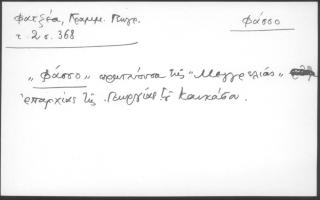 Φατζέα, Γραμμ. Γεωγρ.
τ. 2 σ. 368
Φάσσο
„Φάσσο" πρωτεύουσα τῆς „Μεγγρελίας"
ἐπαρχίας τῆς Γεωργίας τοῦ Καυκάσου.